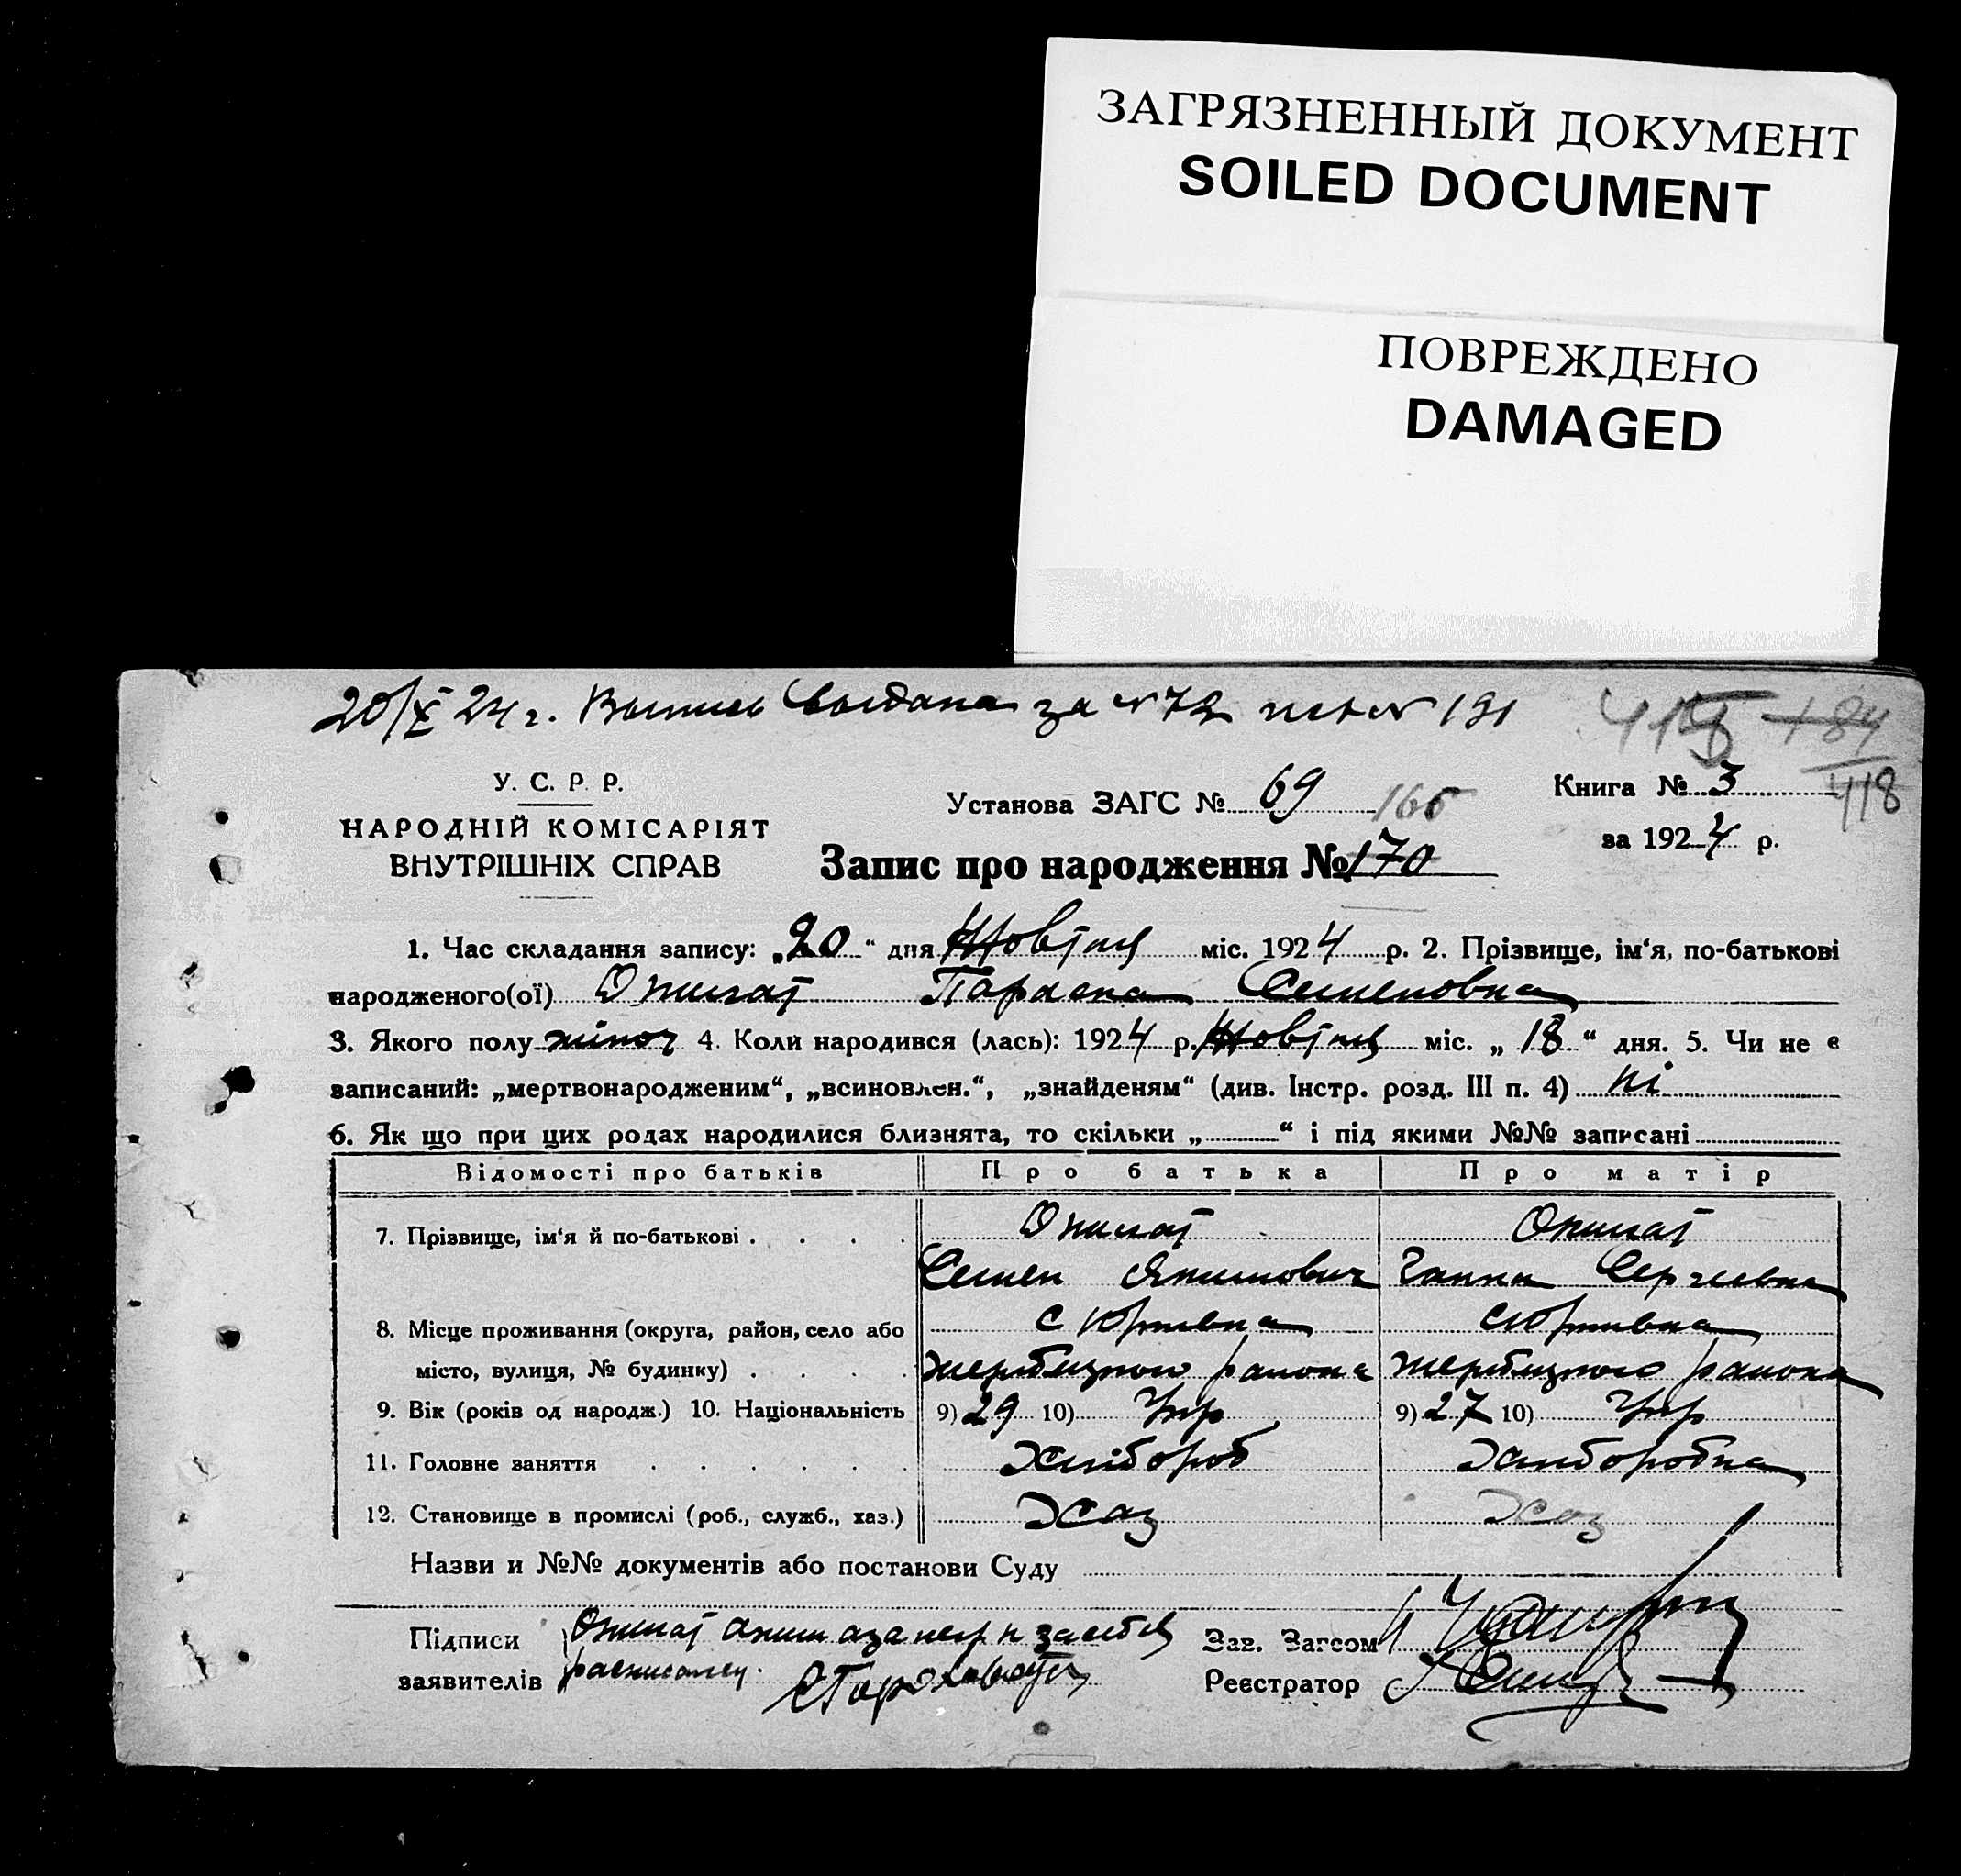 ЗАГРЯЗНЕННЫЙ ДОКУМЕНТ
SOILED DOCUMENT
ПОВРЕЖДЕНО
DAMAGED
20/X 24 г. Выпись выдана за № 72
У. С. Р. Р.
НАРОДНІЙ КОМІСАРІЯТ
ВНУТРІШНІХ СПРАВ
Установа ЗАГС № 69 165
Книга № 3
418
за 1924 р.
Запис про народження № 170
1. Час складання запису: „20“ дня Жовтня міс. 1924 р. 2. Прізвище, ім‘я, по-батькові
народженого(ої) Семеновна
3. Якого полу жіноч 4. Коли народився (лась): 1924 р. Жовтня міс. „18“ дня. 5. Чи не є
записаний: „мертвонародженим“, „всиновлен.“, „знайденям“ (див. Інстр. розд. III п. 4) ні
6. Як що при цих родах народилися близнята, то скільки „ “ і під якими №№ записані
Відомості про батьків Про батька Про матір
7. Прізвище, ім‘я й по-батькові
Семен Якимович Ганна Сергіевна
8. Місце проживання (округа, район, село або с Юрьивка с Юрьивка
місто, вулиця, № будинку) района района
9. Вік (років од народж.) 10. Національність 9) 29 10) Укр 9) 27 10) Укр
11. Головне заняття Хлібороб Хлиборобка
12. Становище в промислі (роб., служб., хаз.) Хаз Хаз
Назви и №№ документів або постанови Суду
Підписи
заявителів расписался.
Зав. Загсом
Реєстратор